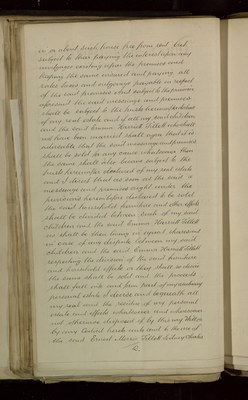 in or about such house free from rent but
subject to their paying the interest upon any
mortgages existing upon the premises and
keeping the same insured and paying all
rates taxes and outgoings payable in respect
of the said premises And subject to the provision
aforesaid the said messuage and premises
shall be subject to the trusts hereinafter declared
of my real estate and if all my said children
and the said Emma Harriet Tillett who shall
not have been married shall agree that it is
advisable that the said messuage and premises
shall be sold for any cause whatsoever then
the same shall also become subject to the
trusts hereinafter declared of my real estate
and I direct that as soon as the said
messuage and premises ought under the
provisions hereinbefore declared to be sold
the said household furniture and other effects
shall be divided between such of my said
children and the said Emma Harriet Tillett
as shall be then living in equal shares and
in case of any dispute between my said
children and the said Emma Harriet Tillett
respecting the division of the said furniture
and household effects or they shall so desire
the same shall be sold and the proceeds
shall fall into and form part of my residuary
personal estate I devise and bequeath all
my real and the residue of my personal
estate and effects whatsoever and wheresoever
not otherwise disposed of by this my Will or
by any Codicil hereto unto and to the use of
the said Ernest Morris Tillett Sidney Charles